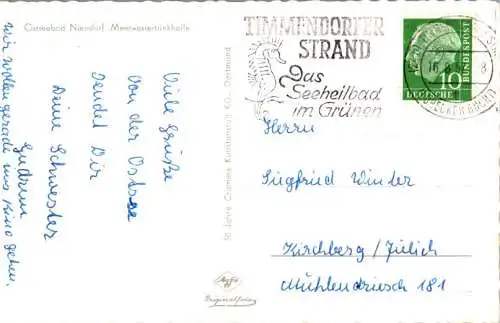 Ostseebad Niendorf Meerwassertrinkhalle
Viele Grüße
von der Ostsee
sendet Dir
Deine Schwester
Gudrun
Wir wollen gerade ins Kino gehen.
50 Jahre Cramers Kunstanstalt KG., Dortmund
Agfa
Originalfoto
TIMMENDORFER
STRAND
Das
Seeheilbad
im Grünen
16.8.
8
10
DEUTSCHE
BUNDESPOST
Herrn
Siegfried Winter
Kirchberg / Jülich
Mühlendriesch 181